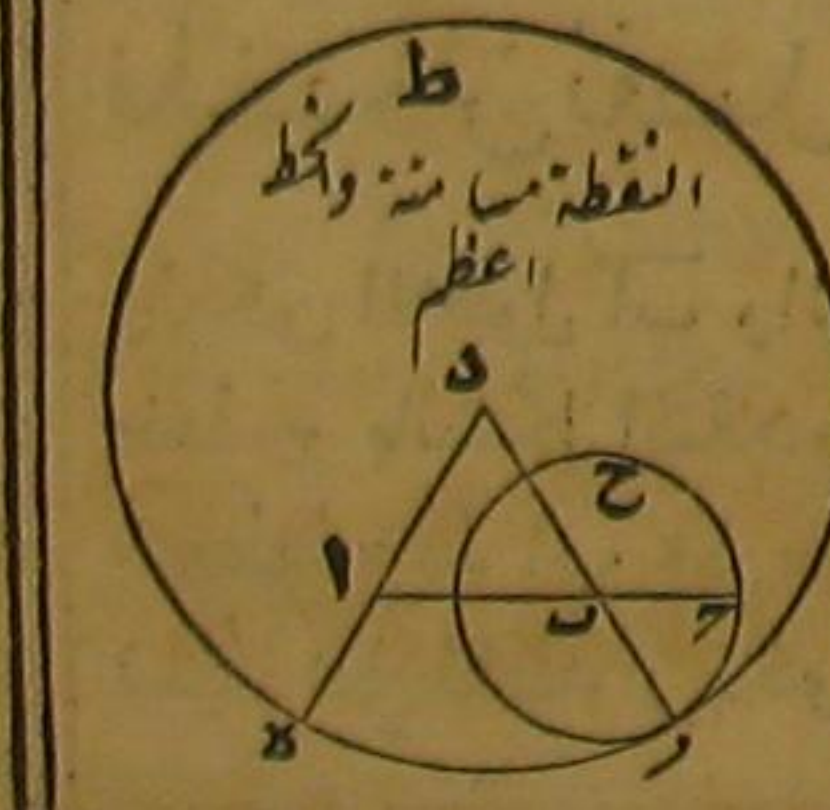 ط
النقطة مسامتة والخط
اعظم
د
ح
ا
ب
ج
ه
و